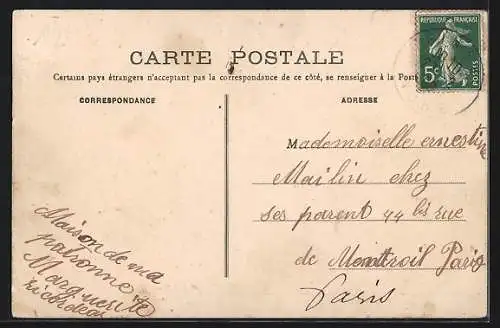 CARTE POSTALE
Certains pays étrangers n'acceptant pas la correspondance de ce côté, se renseigner à la Poste
CORRESPONDANCE
ADRESSE
REPUBLIQUE FRANÇAISE
5c
POSTES
Mademoiselle ernestine
Mailin chez
ses parent 44 bis rue
de Montroil Paris
Paris
Maison de ma
patronne
Marguerite